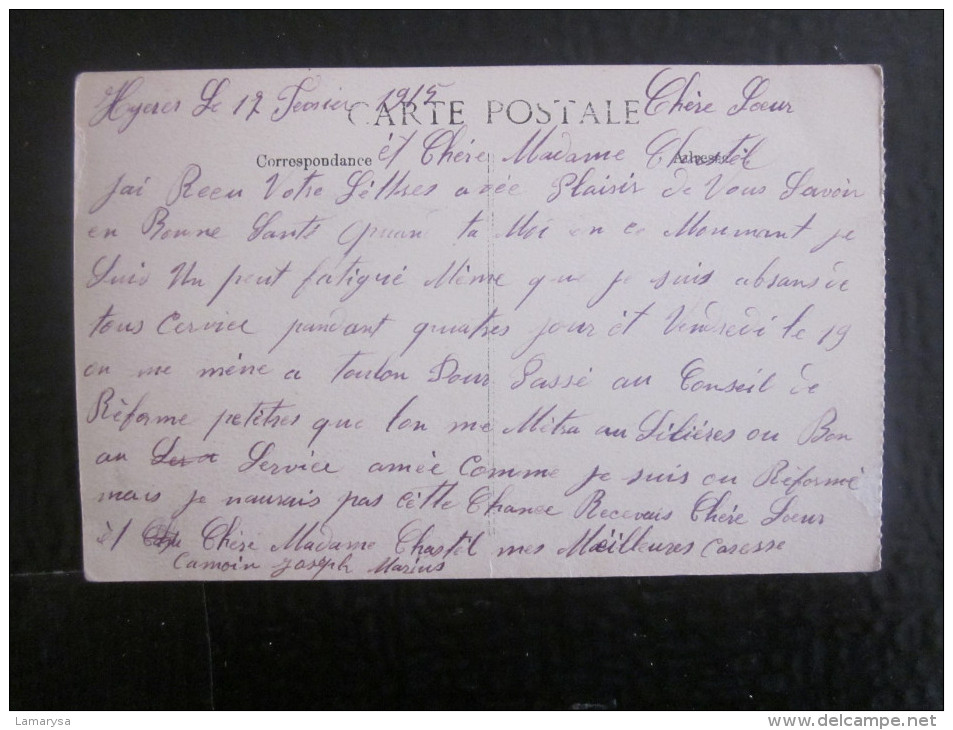 Hyeres Le 12 Fevrier 1915 Chère Sœur
CARTE POSTALE
Correspondance
Adresse
èt Chére Madame Chastèl
Jai Recu Votre Lèttres avée Plaisir de Vous Savoir
en Bonne Santé quan ta Moi en ce Moumant je
Suis Un peut fatigué Mème que je suis absans de
tous Cervice pandant quatres jour èt Vendredi le 19
on me mène a toulon Pour Passé au Conseil de
Rèforme petètres que lon me Mètra au Siliéres ou Bon
au Service amée Comme je suis ou Réformé
mais je naurais pas cètte Chance Recevais Chére Sœur
èt Chére Madame Chastèl mes Mèilleures Caresse
Camoin Joseph Marius
Lamarysa
www.delcampe.net